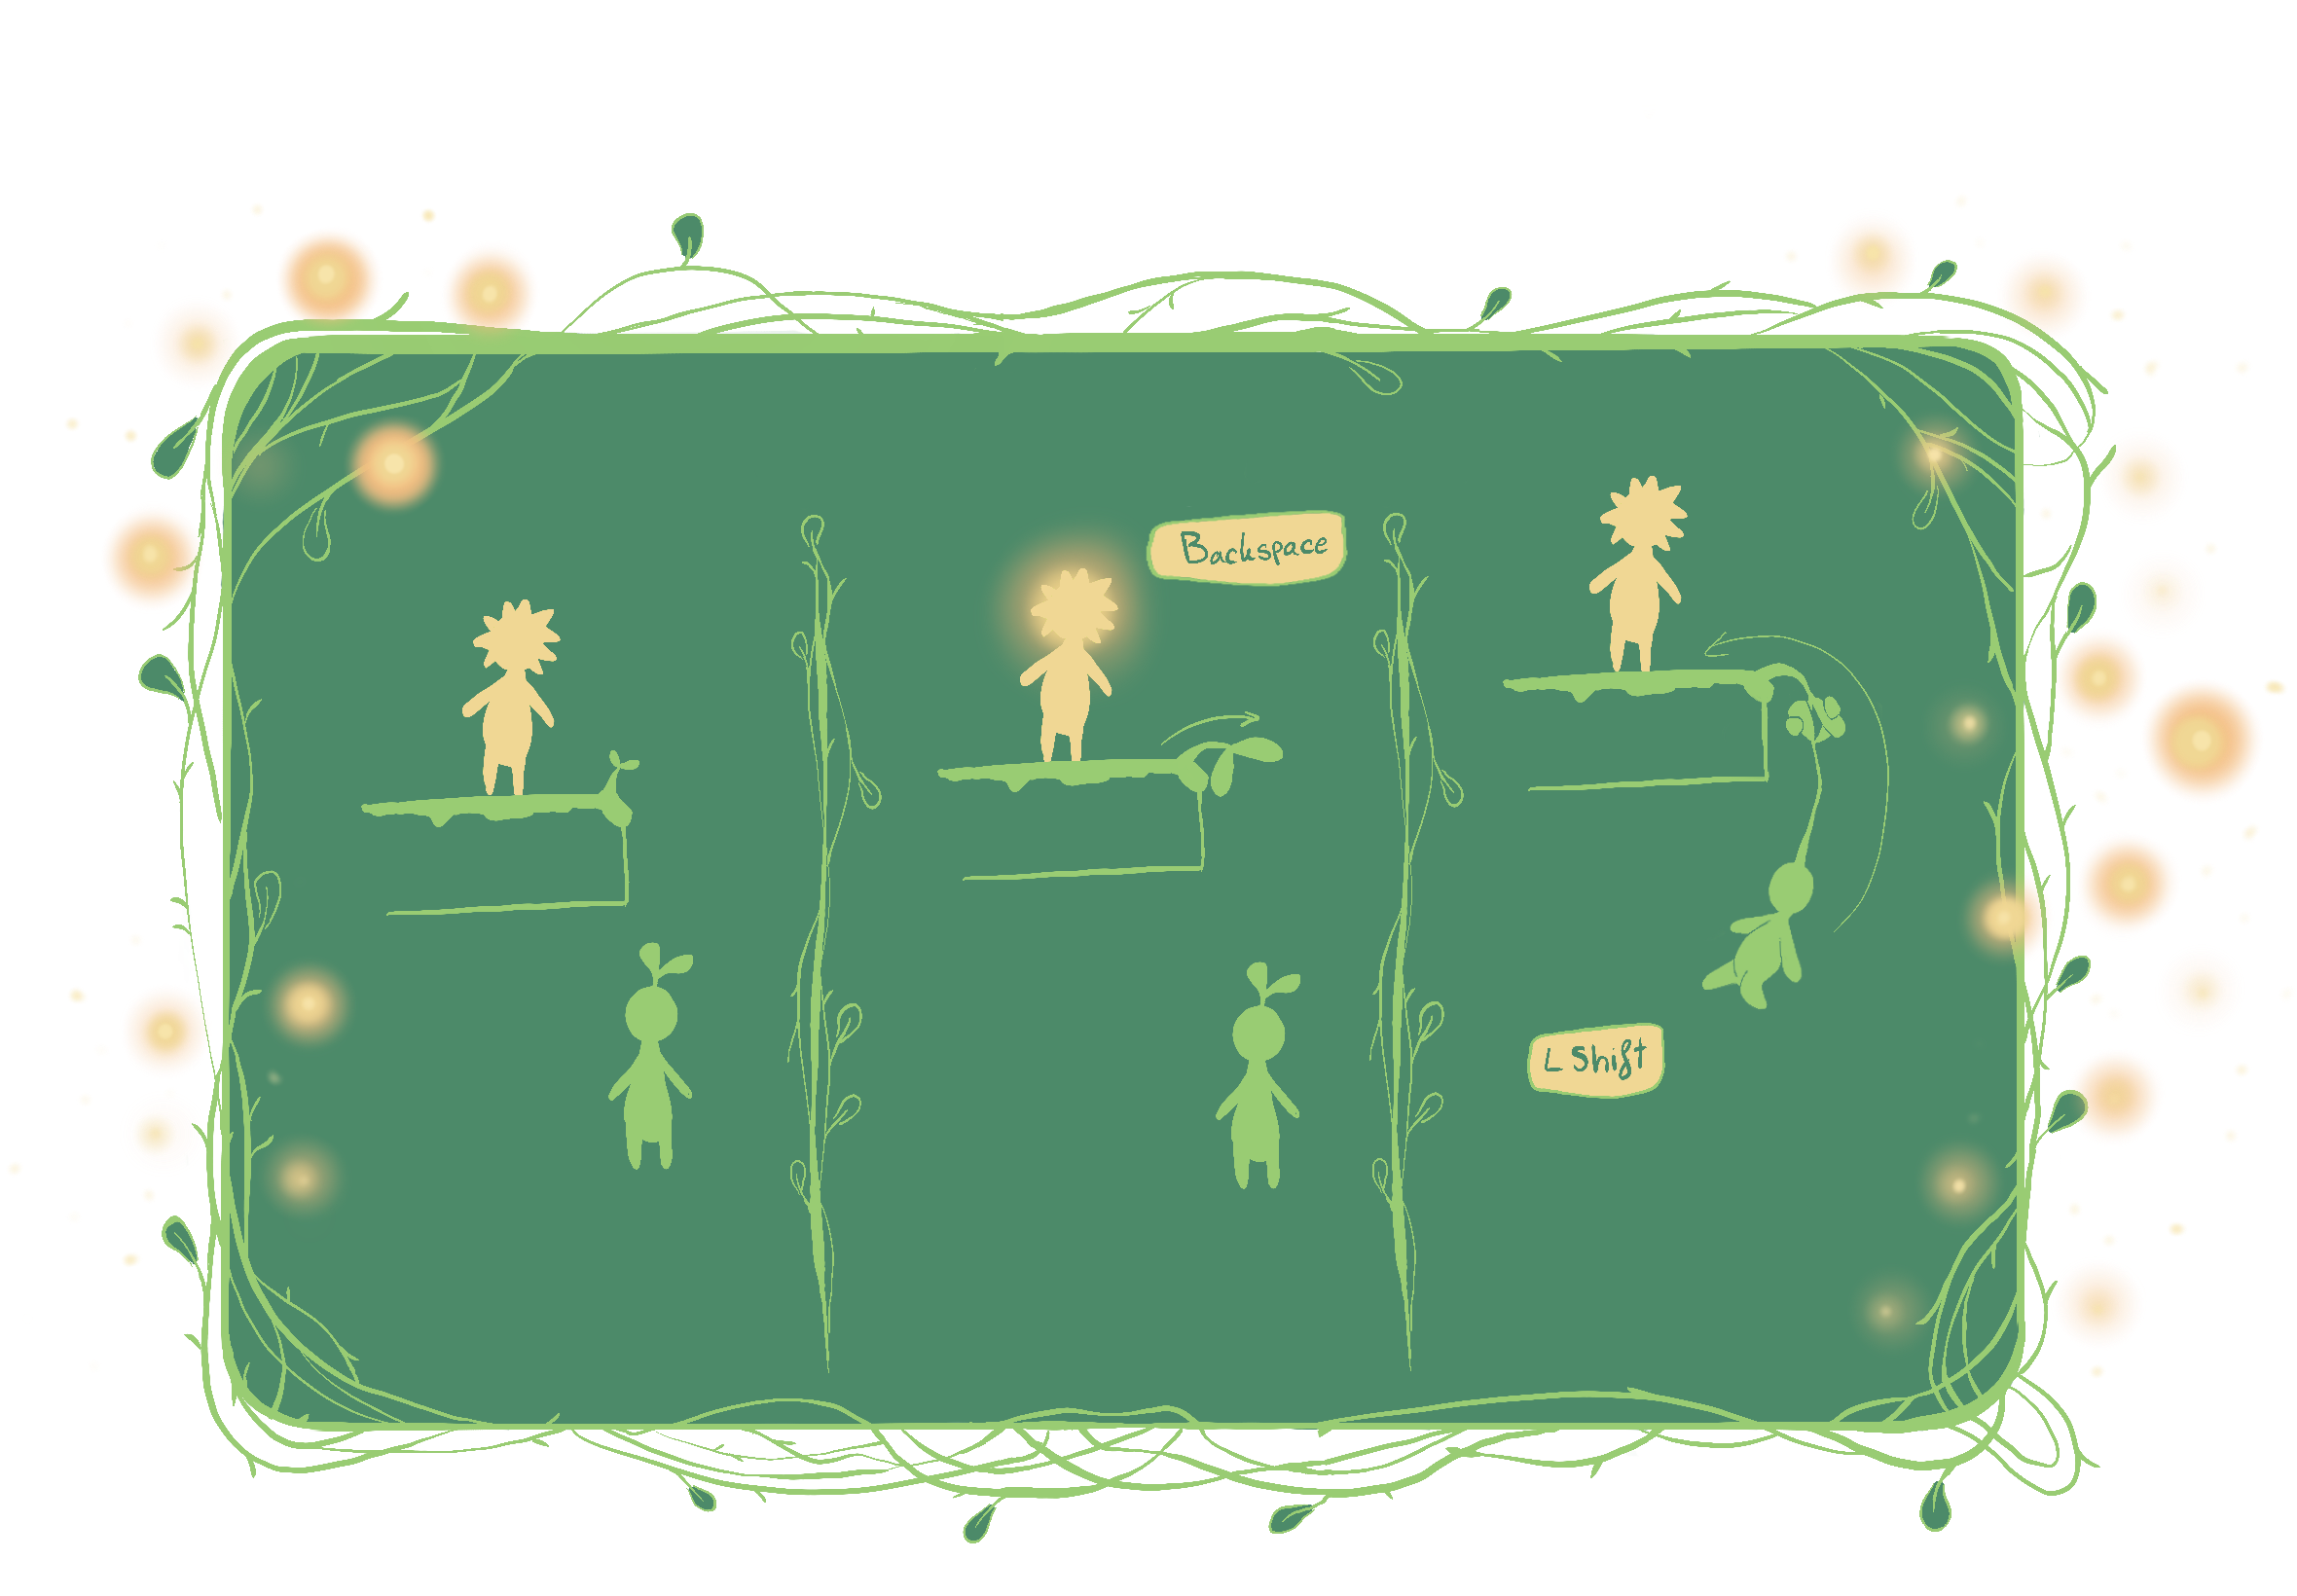 Backspace
L Shift